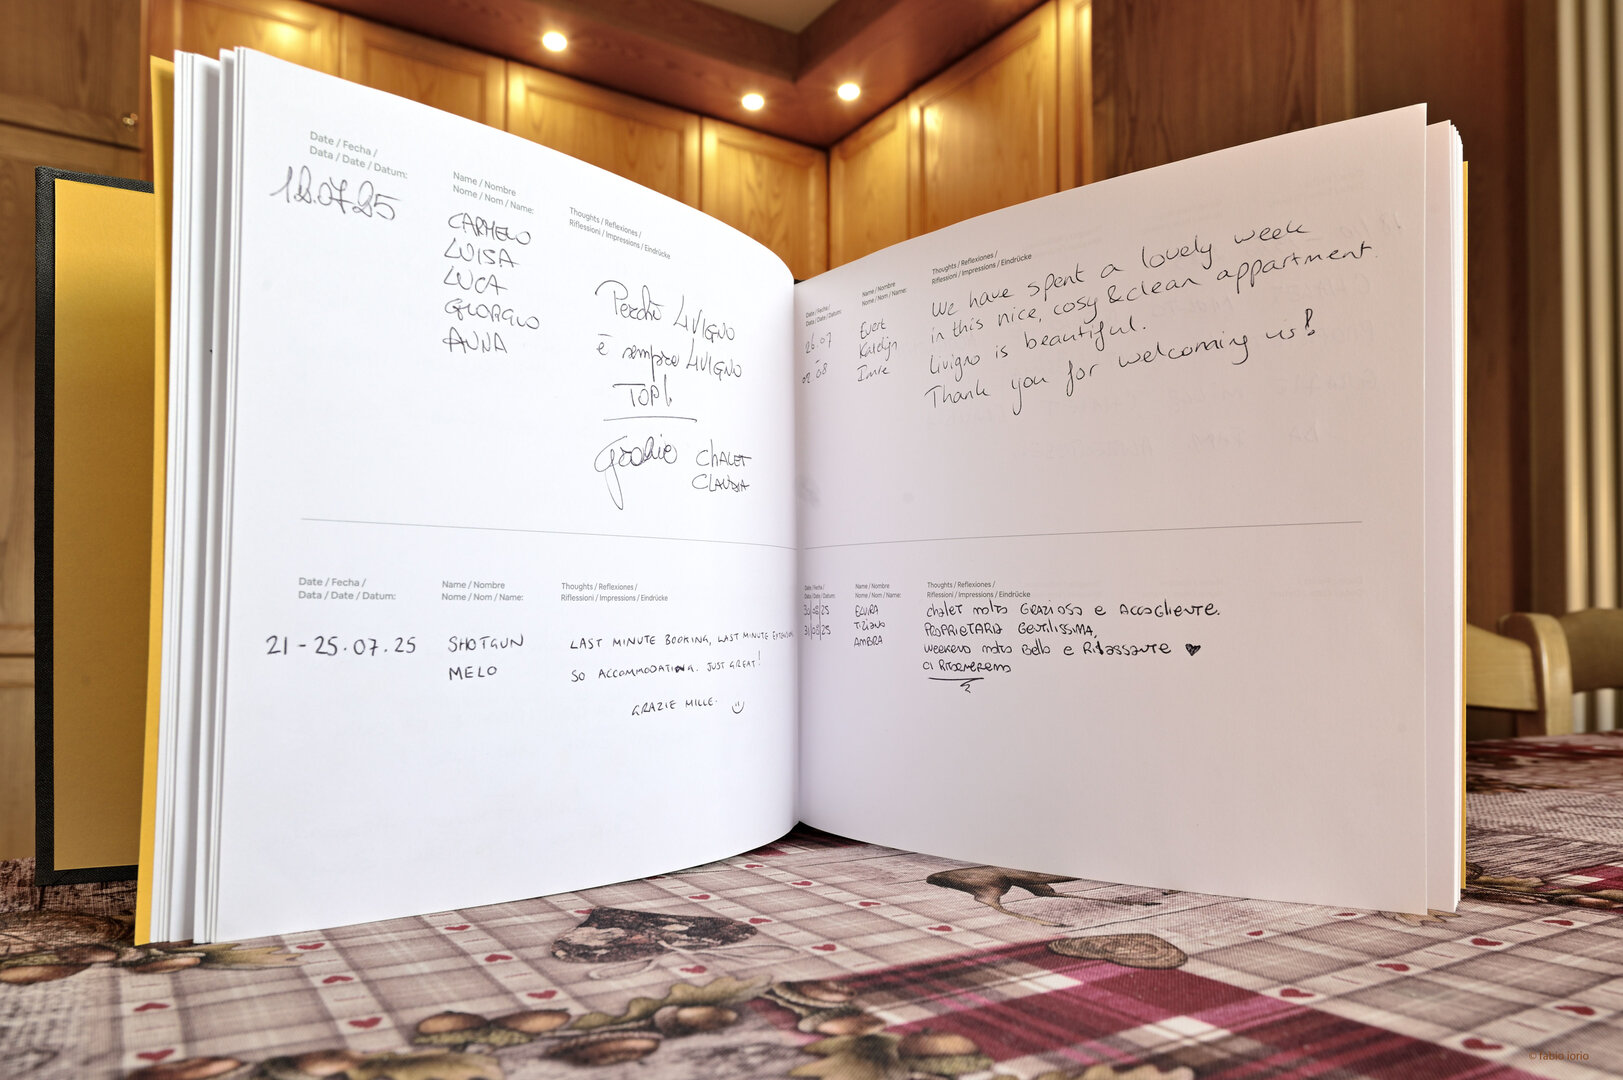 Date / Fecha /
Data / Date / Datum:
Name / Nombre
Nome / Nom / Name:
Thoughts / Reflexiones /
Riflessioni / Impressions / Eindrücke
12.07.25
CARMELO
LUISA
LUCA
GIORGIO
ANNA
Perchè LIVIGNO
è sempre LIVIGNO
TOP!
Grazie CHALET
CLAUDIA
Date / Fecha /
Data / Date / Datum:
Name / Nombre
Nome / Nom / Name:
Thoughts / Reflexiones /
Riflessioni / Impressions / Eindrücke
21 - 25.07.25
SHOTGUN
MELO
LAST MINUTE BOOKING, LAST MINUTE EXTENSION
SO ACCOMMODATING. JUST GREAT!
GRAZIE MILLE.
Date / Fecha /
Data / Date / Datum:
Name / Nombre
Nome / Nom / Name:
Thoughts / Reflexiones /
Riflessioni / Impressions / Eindrücke
26.07
-
02.08
Evert
Katelijn
Imre
We have spent a lovely week
in this nice, cosy & clean appartment.
Livigno is beautiful.
Thank you for welcoming us!
Date / Fecha /
Data / Date / Datum:
Name / Nombre
Nome / Nom / Name:
Thoughts / Reflexiones /
Riflessioni / Impressions / Eindrücke
31|08|25
ELVIRA
TIZIANO
AMBRA
CHALET MOLTO GRAZIOSO E ACCOGLIENTE.
PROPRIETARIA GENTILISSIMA,
WEEKEND MOLTO BELLO E RILASSANTE ♥
CI RITORNEREMO
© fabio iorio